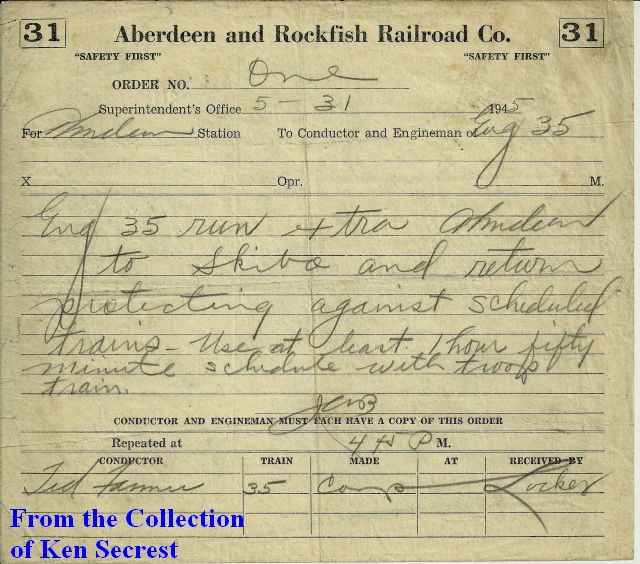 31 Aberdeen and Rockfish Railroad Co. 31
"SAFETY FIRST" "SAFETY FIRST"
ORDER NO. One
Superintendent's Office 5-31 1945
For Aberdeen Station To Conductor and Engineman of Eng 35
X Opr. M.
Eng 35 run extra Aberdeen
to Skibo and return
protecting against scheduled
trains - Use at least 1 hour fifty
minute schedule with troop
train.
CONDUCTOR AND ENGINEMAN MUST EACH HAVE A COPY OF THIS ORDER
Repeated at P M.
CONDUCTOR TRAIN MADE AT RECEIVED BY
Ted 35 Comp
From the Collection
of Ken Secrest